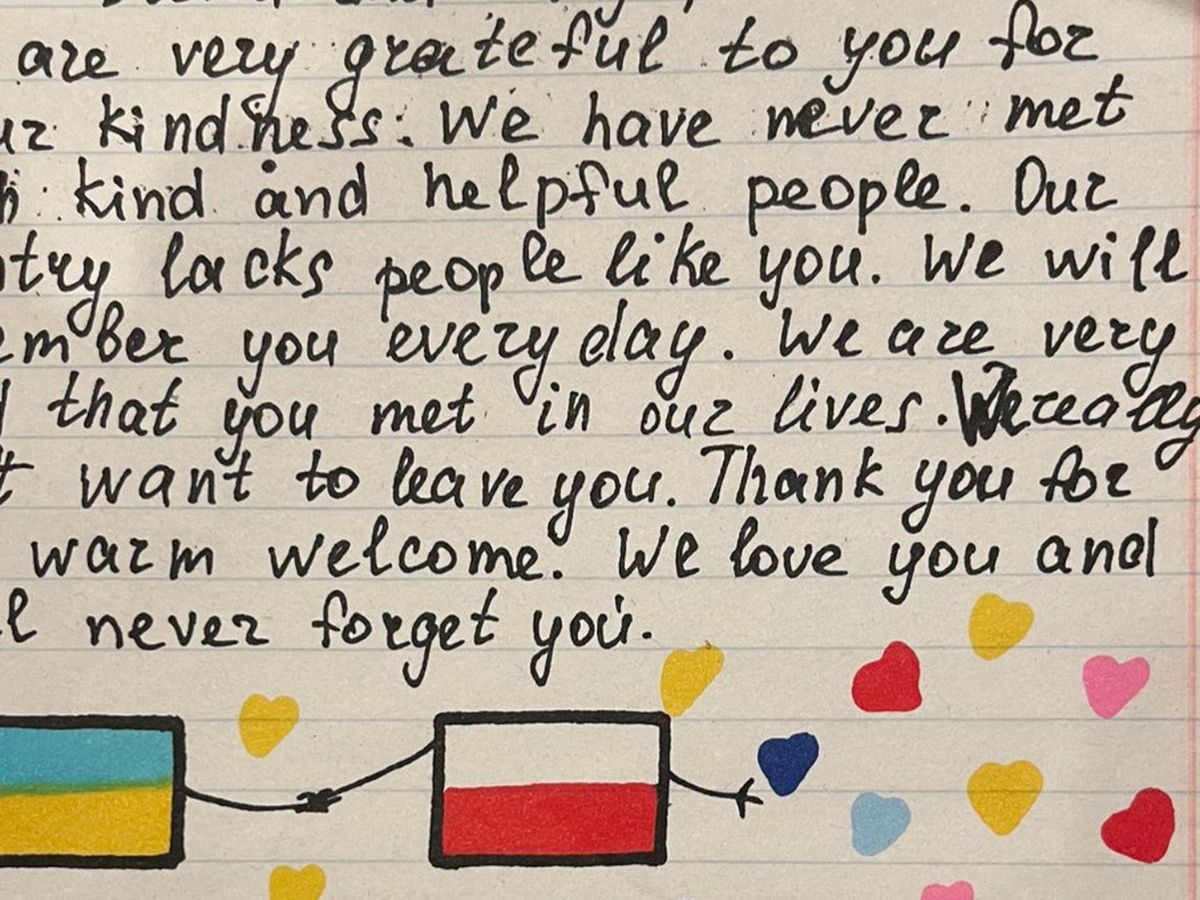 are very grateful to you for
ur kindness. We have never met
h kind and helpful people. Our
ntry lacks people like you. We will
ember you every day. We are very
d that you met in our lives. We really
t want to leave you. Thank you for
warm welcome. We love you and
l never forget you.